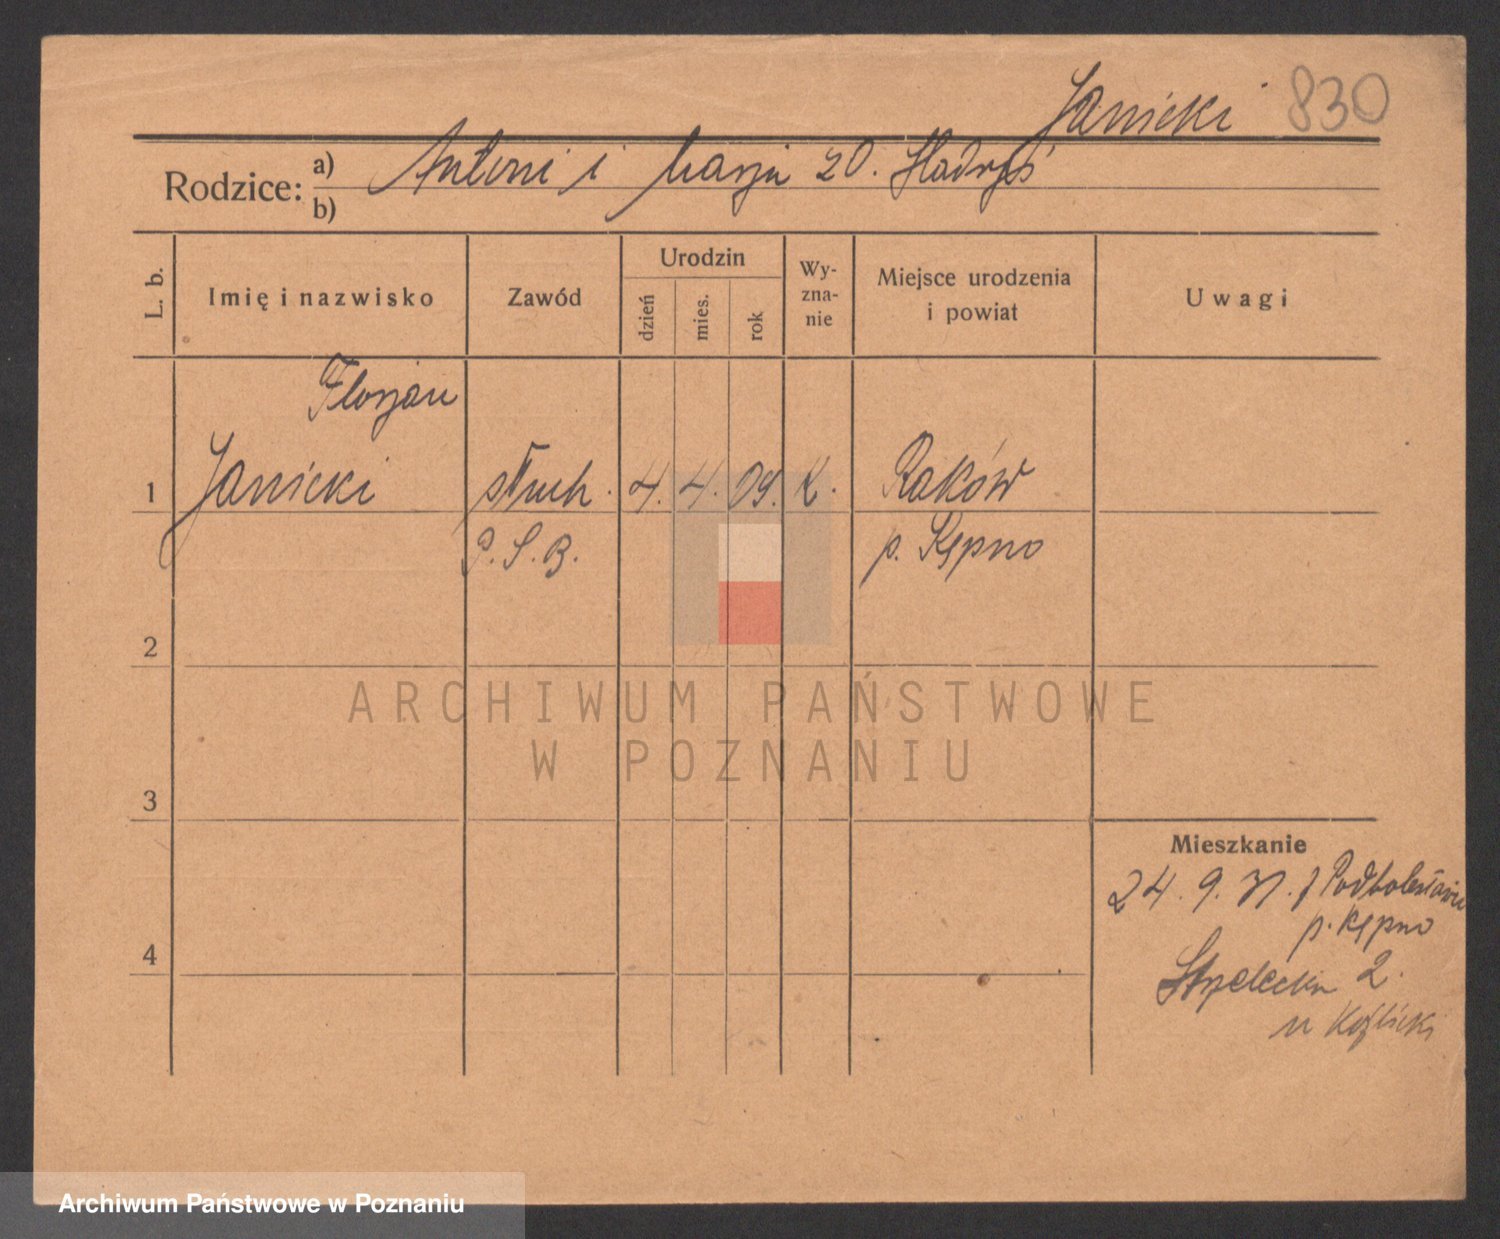 Janicki 830
Rodzice: a) Antoni i Marja zd. Hadryś
b)
L. b.
Imię i nazwisko
Zawód
Urodzin
dzień
mies.
rok
Wy-
zna-
nie
Miejsce urodzenia
i powiat
Uwagi
Florjan
1 Janicki słuch. 4. 4. 09. K. Raków
P. S. B. p. Kępno
2
3
4
Mieszkanie
24. 9. 31. z Podbolesławiec
p. Kępno
Strzelecka 2.
u Koźlicki
ARCHIWUM PAŃSTWOWE
W POZNANIU
Archiwum Państwowe w Poznaniu